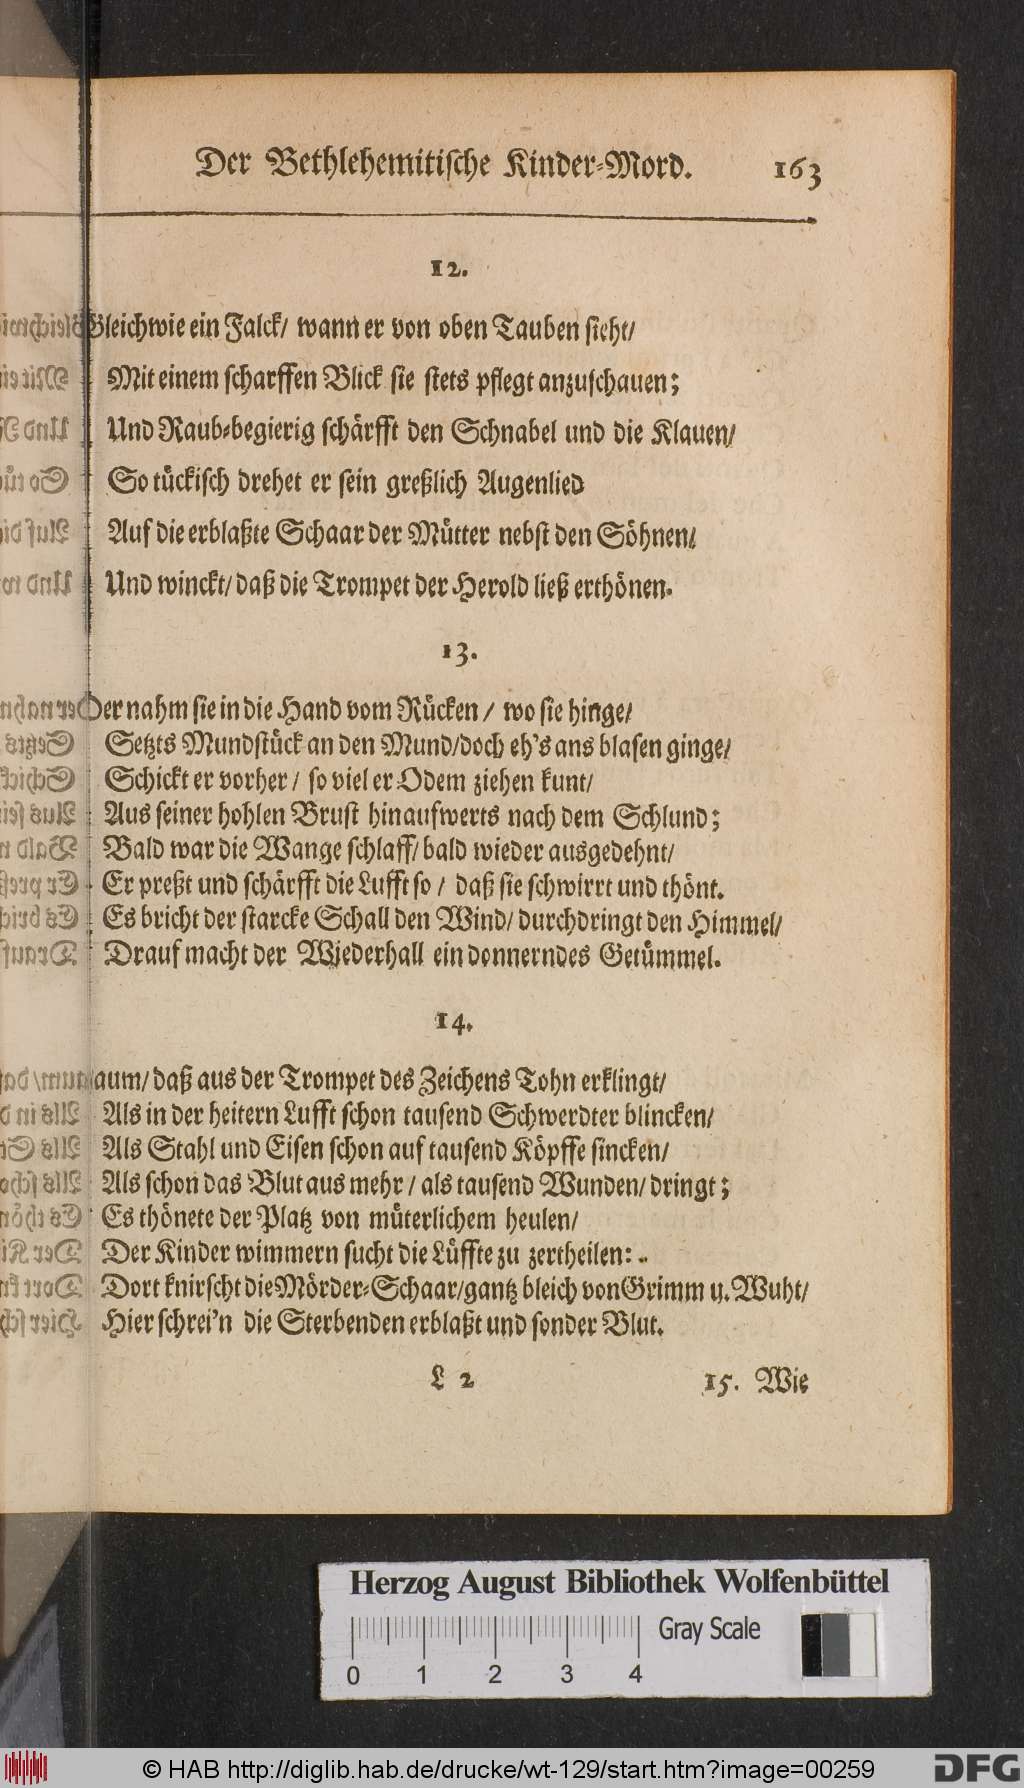 Der Bethlehemitische Kinder-Mord. 163
12.
Gleichwie ein Falck/ wann er von oben Tauben sieht/
Mit einem scharffen Blick sie stets pflegt anzuschauen;
Und Raub-begierig schärfft den Schnabel und die Klauen/
So tückisch drehet er sein greßlich Augenlied
Auf die erblaßte Schaar der Mütter nebst den Söhnen/
Und winckt/ daß die Trompet der Herold ließ erthönen.
13.
Der nahm sie in die Hand vom Rücken / wo sie hinge/
Setzts Mundstück an den Mund/ doch eh's ans blasen ginge/
Schickt er vorher / so viel er Odem ziehen kunt/
Aus seiner hohlen Brust hinaufwerts nach dem Schlund;
Bald war die Wange schlaff/ bald wieder ausgedehnt/
Er preßt und schärfft die Lufft so / daß sie schwirrt und thönt.
Es bricht der starcke Schall den Wind/ durchdringt den Himmel/
Drauf macht der Wiederhall ein donnerndes Getümmel.
14.
aum/ daß aus der Trompet des Zeichens Tohn erklingt/
Als in der heitern Lufft schon tausend Schwerdter blincken/
Als Stahl und Eisen schon auf tausend Köpffe sincken/
Als schon das Blut aus mehr / als tausend Wunden/ dringt;
Es thönete der Platz von müterlichem heulen/
Der Kinder wimmern sucht die Lüffte zu zertheilen:
Dort knirscht die Mörder-Schaar/ gantz bleich von Grimm u. Wuht/
Hier schrei'n die Sterbenden erblaßt und sonder Blut.
L 2 15. Wie
Herzog August Bibliothek Wolfenbüttel
Gray Scale
0 1 2 3 4
© HAB http://diglib.hab.de/drucke/wt-129/start.htm?image=00259
DFG